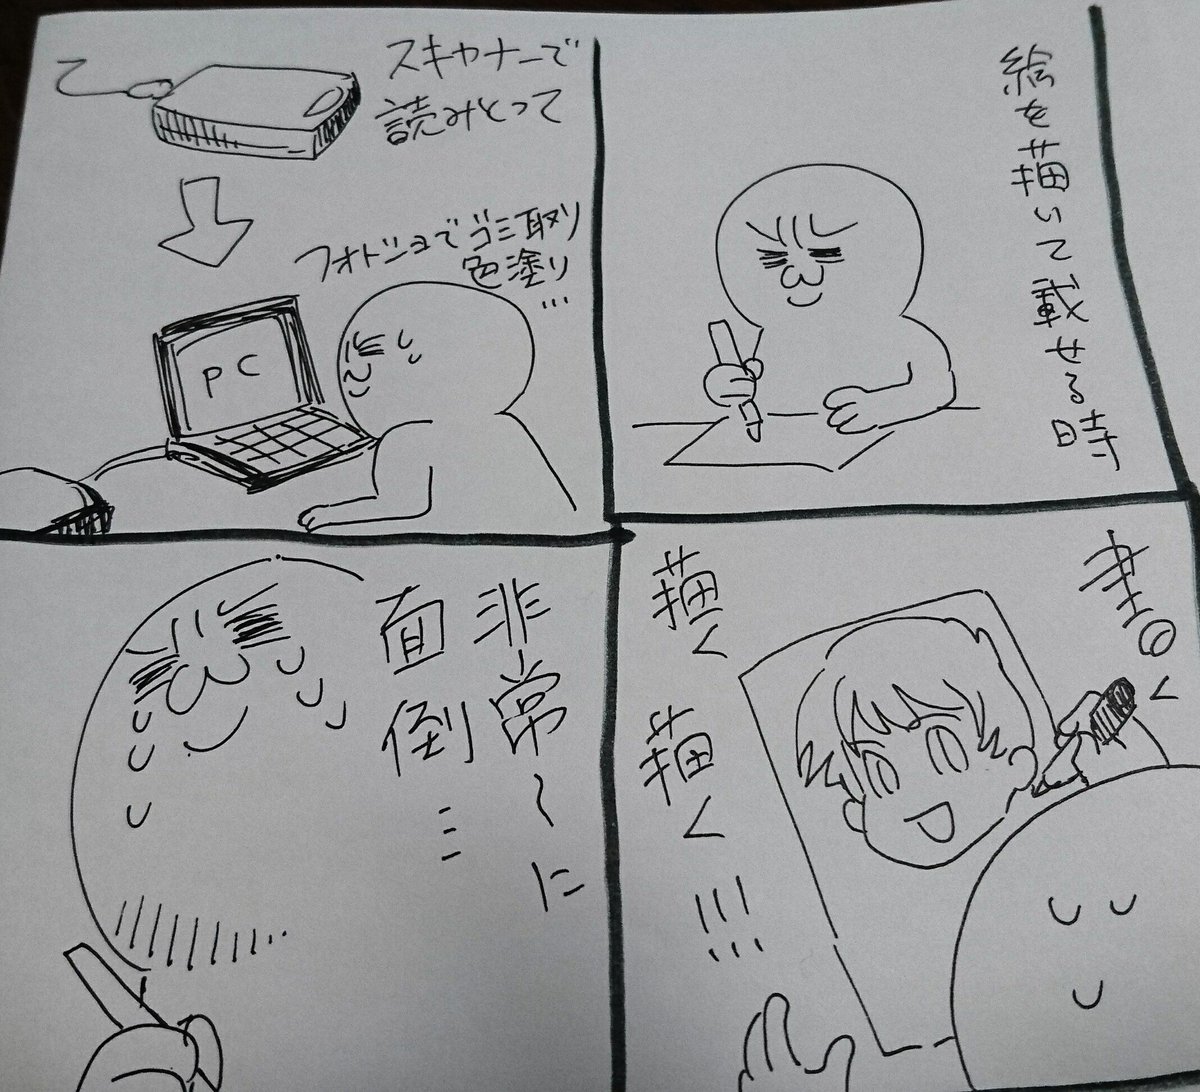 絵を描いて載せる時
書く
描く
描く!!!
スキャナーで
読みとって
フォトショでゴミ取り
色塗り…
PC
非常〜に
面倒…